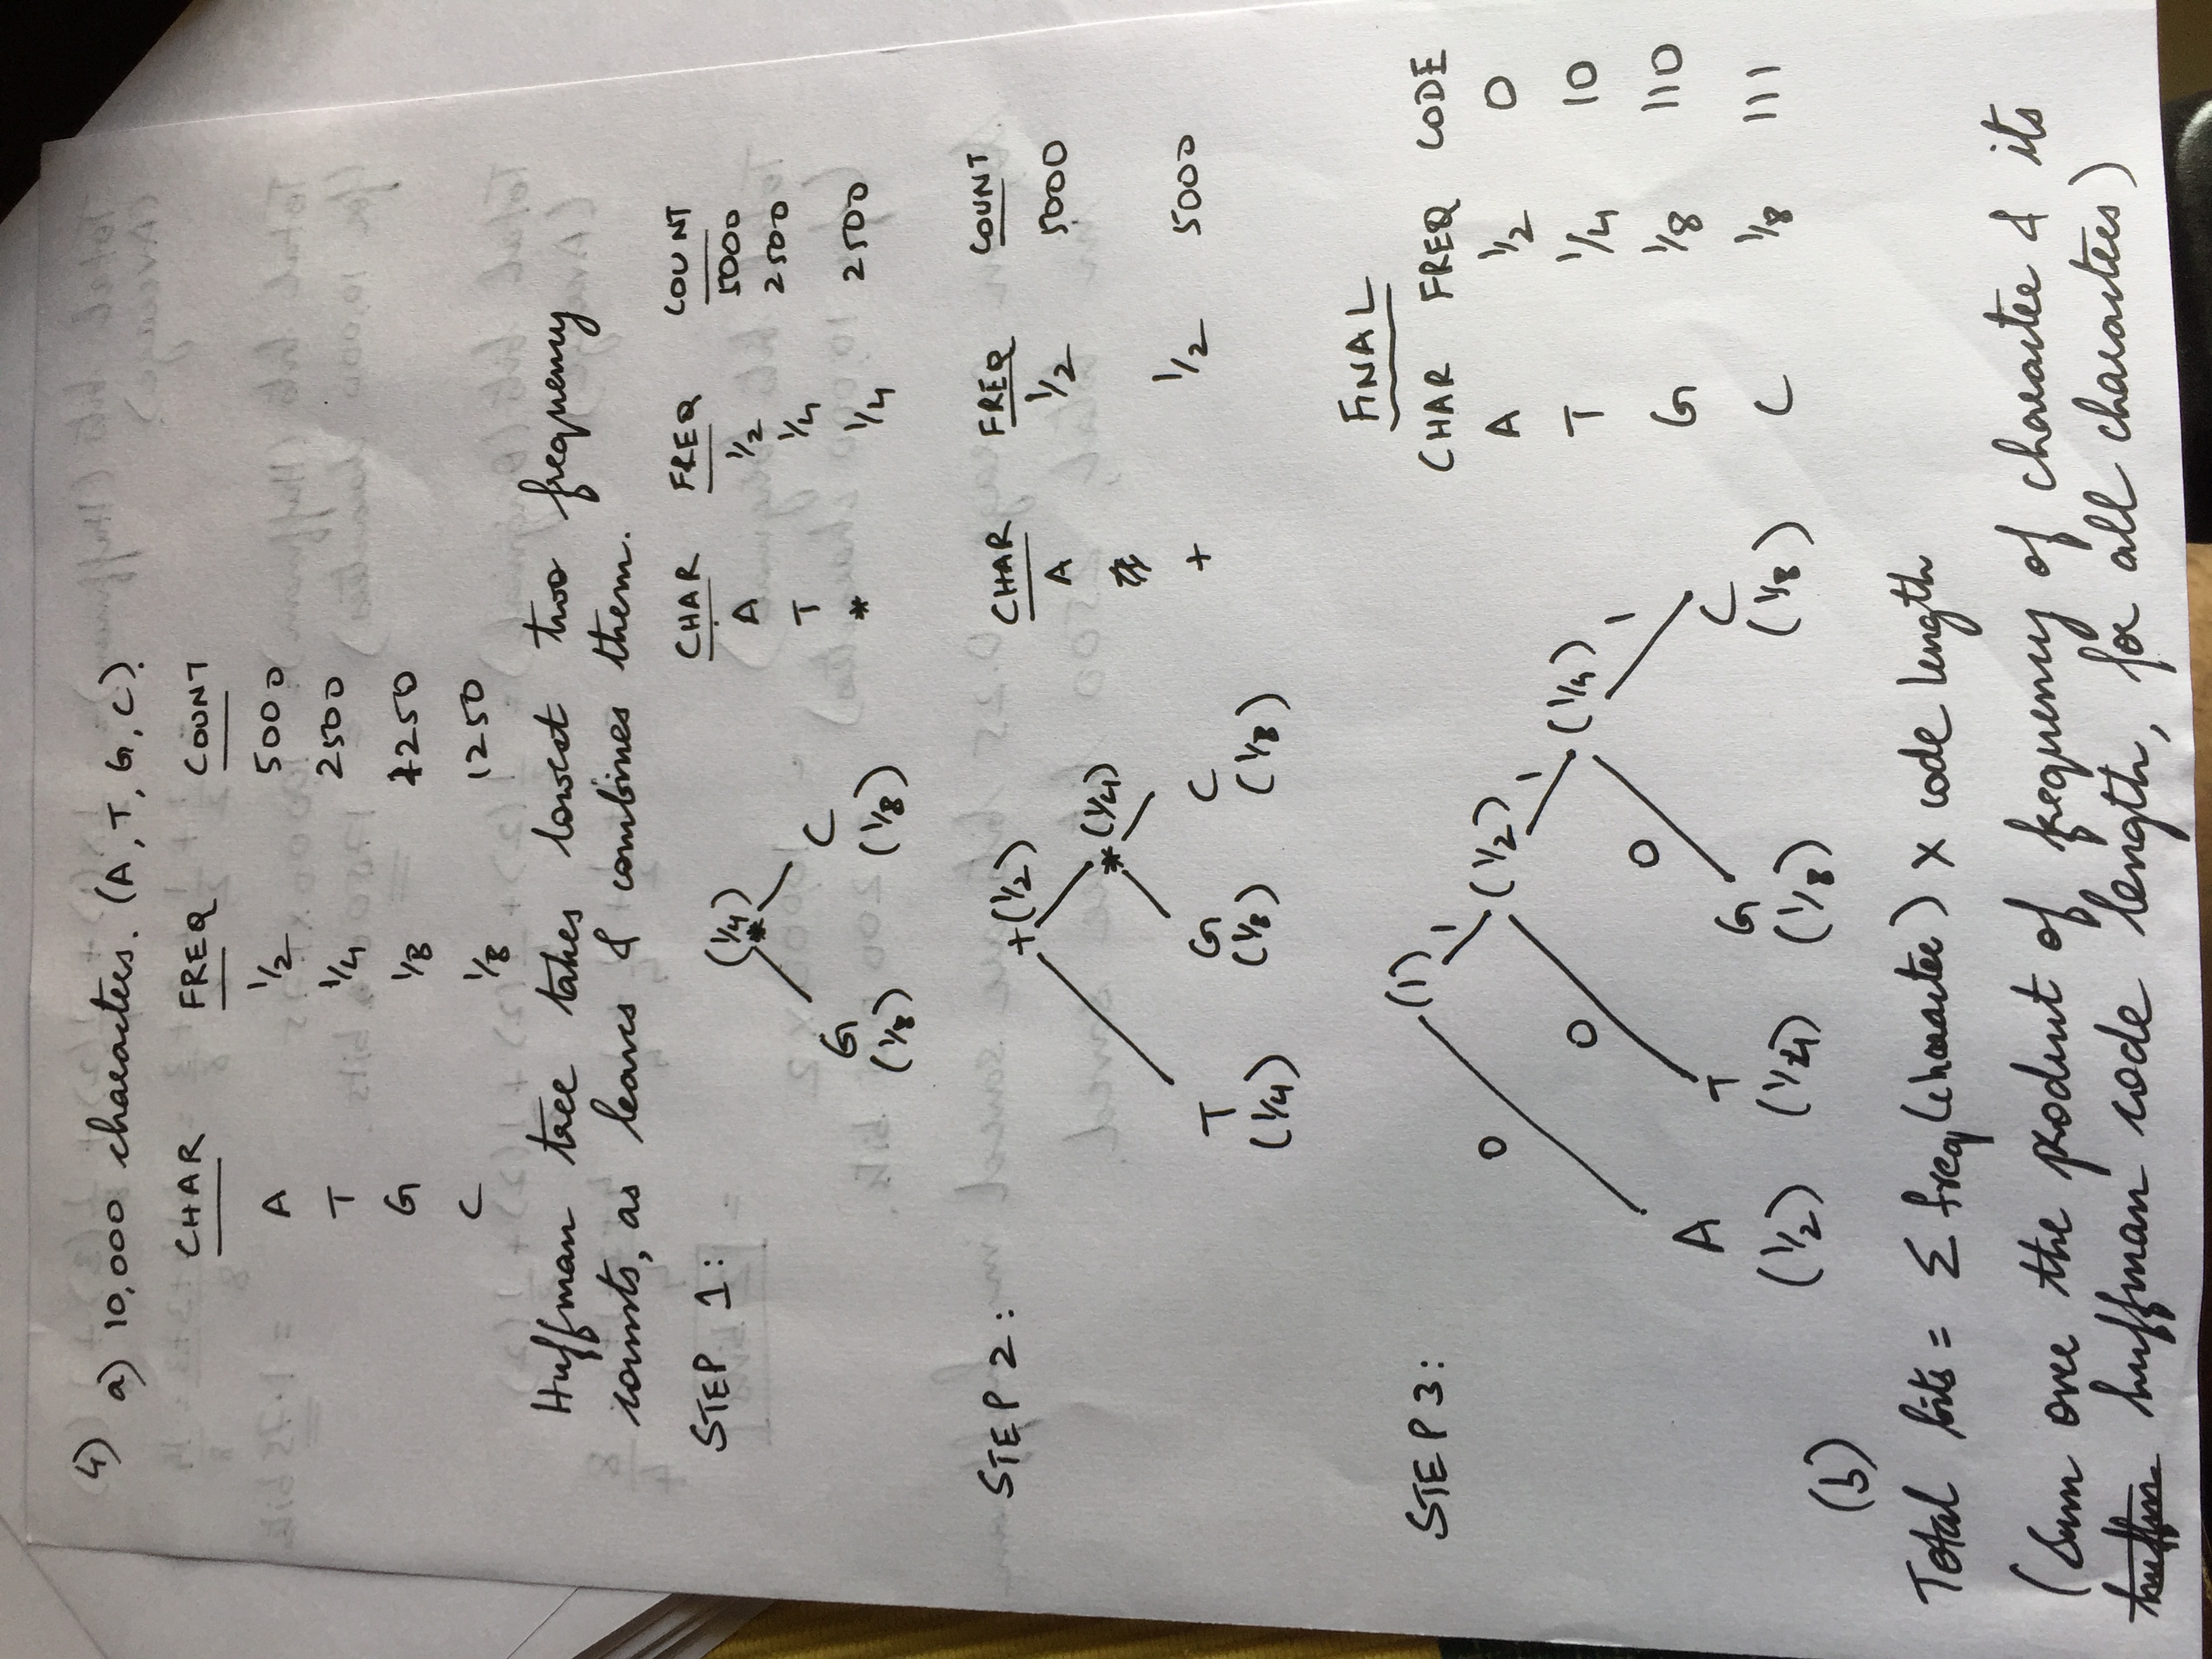 4) a) 10,000 characters. (A, T, G, C).
CHAR FREQ COUNT
A 1/2 5000
T 1/4 2500
G 1/8 1250
C 1/8 1250
Huffman tree takes lowest two frequency
counts, as leaves & combines them.
STEP 1:
(1/4)
*
G C
(1/8) (1/8)
CHAR FREQ COUNT
A 1/2 5000
T 1/4 2500
* 1/4 2500
STEP 2:
+(1/2)
*(1/4)
T G C
(1/4) (1/8) (1/8)
CHAR FREQ COUNT
A 1/2 5000
+ 1/2 5000
STEP 3:
(1)
0 1
(1/2)
0 1
(1/4)
0 1
A T G C
(1/2) (1/4) (1/8) (1/8)
FINAL
CHAR FREQ CODE
A 1/2 0
T 1/4 10
G 1/8 110
C 1/8 111
(b)
Total bits = Σ freq(character) × code length
(Sum over the product of frequency of character & its
huffman code length, for all characters)